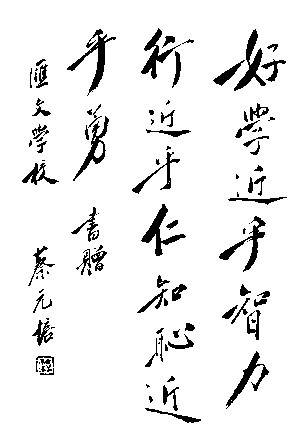 好學近乎智力
行近乎仁知恥近
乎勇 書贈
匯文學校
蔡元培